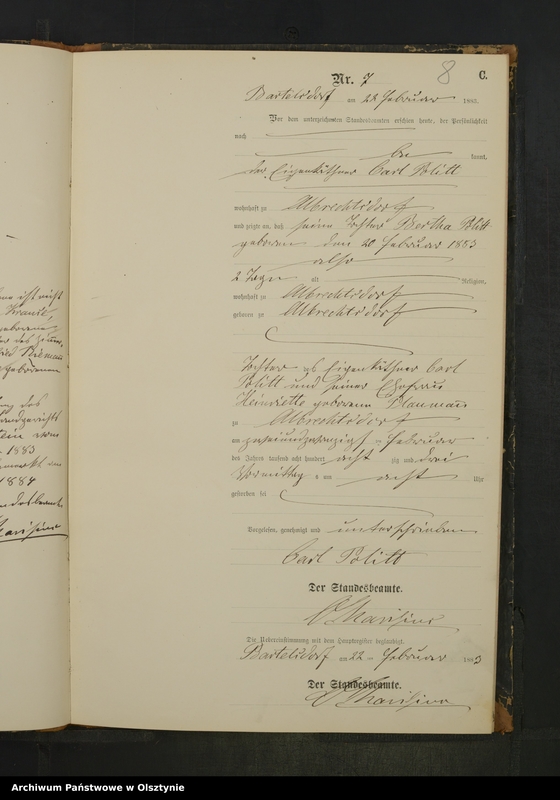 8 C.
Nr. 7
Bartelsdorf am 22 Februar 1883.
Vor dem unterzeichneten Standesbeamten erschien heute, der Persönlichkeit
nach
be kannt,
der Eigenkäthner Carl Politt
wohnhaft zu Albrechtsdorf
und zeigte an, daß seine Tochter Bertha Politt
geboren den 20 Februar 1883
also
2 Tage alt Religion,
wohnhaft zu Albrechtsdorf
geboren zu Albrechtsdorf
Tochter des Eigenkäthner Carl
Politt und seiner Ehefrau
Henriette geborene Naumann
zu Albrechtsdorf
am zweiundzwanzigsten Februar
des Jahres tausend acht hundert acht zig und drei
Vormittag s um acht Uhr
gestorben sei
Vorgelesen, genehmigt und unterschrieben
Carl Politt
Der Standesbeamte.
Die Uebereinstimmung mit dem Hauptregister beglaubigt.
Bartelsdorf am 22 ten Februar 1883
Der Standesbeamte.
ist nicht
geboren
geborenen
des
Landgerichts
1883
am
1884
Standesbeamte
Archiwum Państwowe w Olsztynie